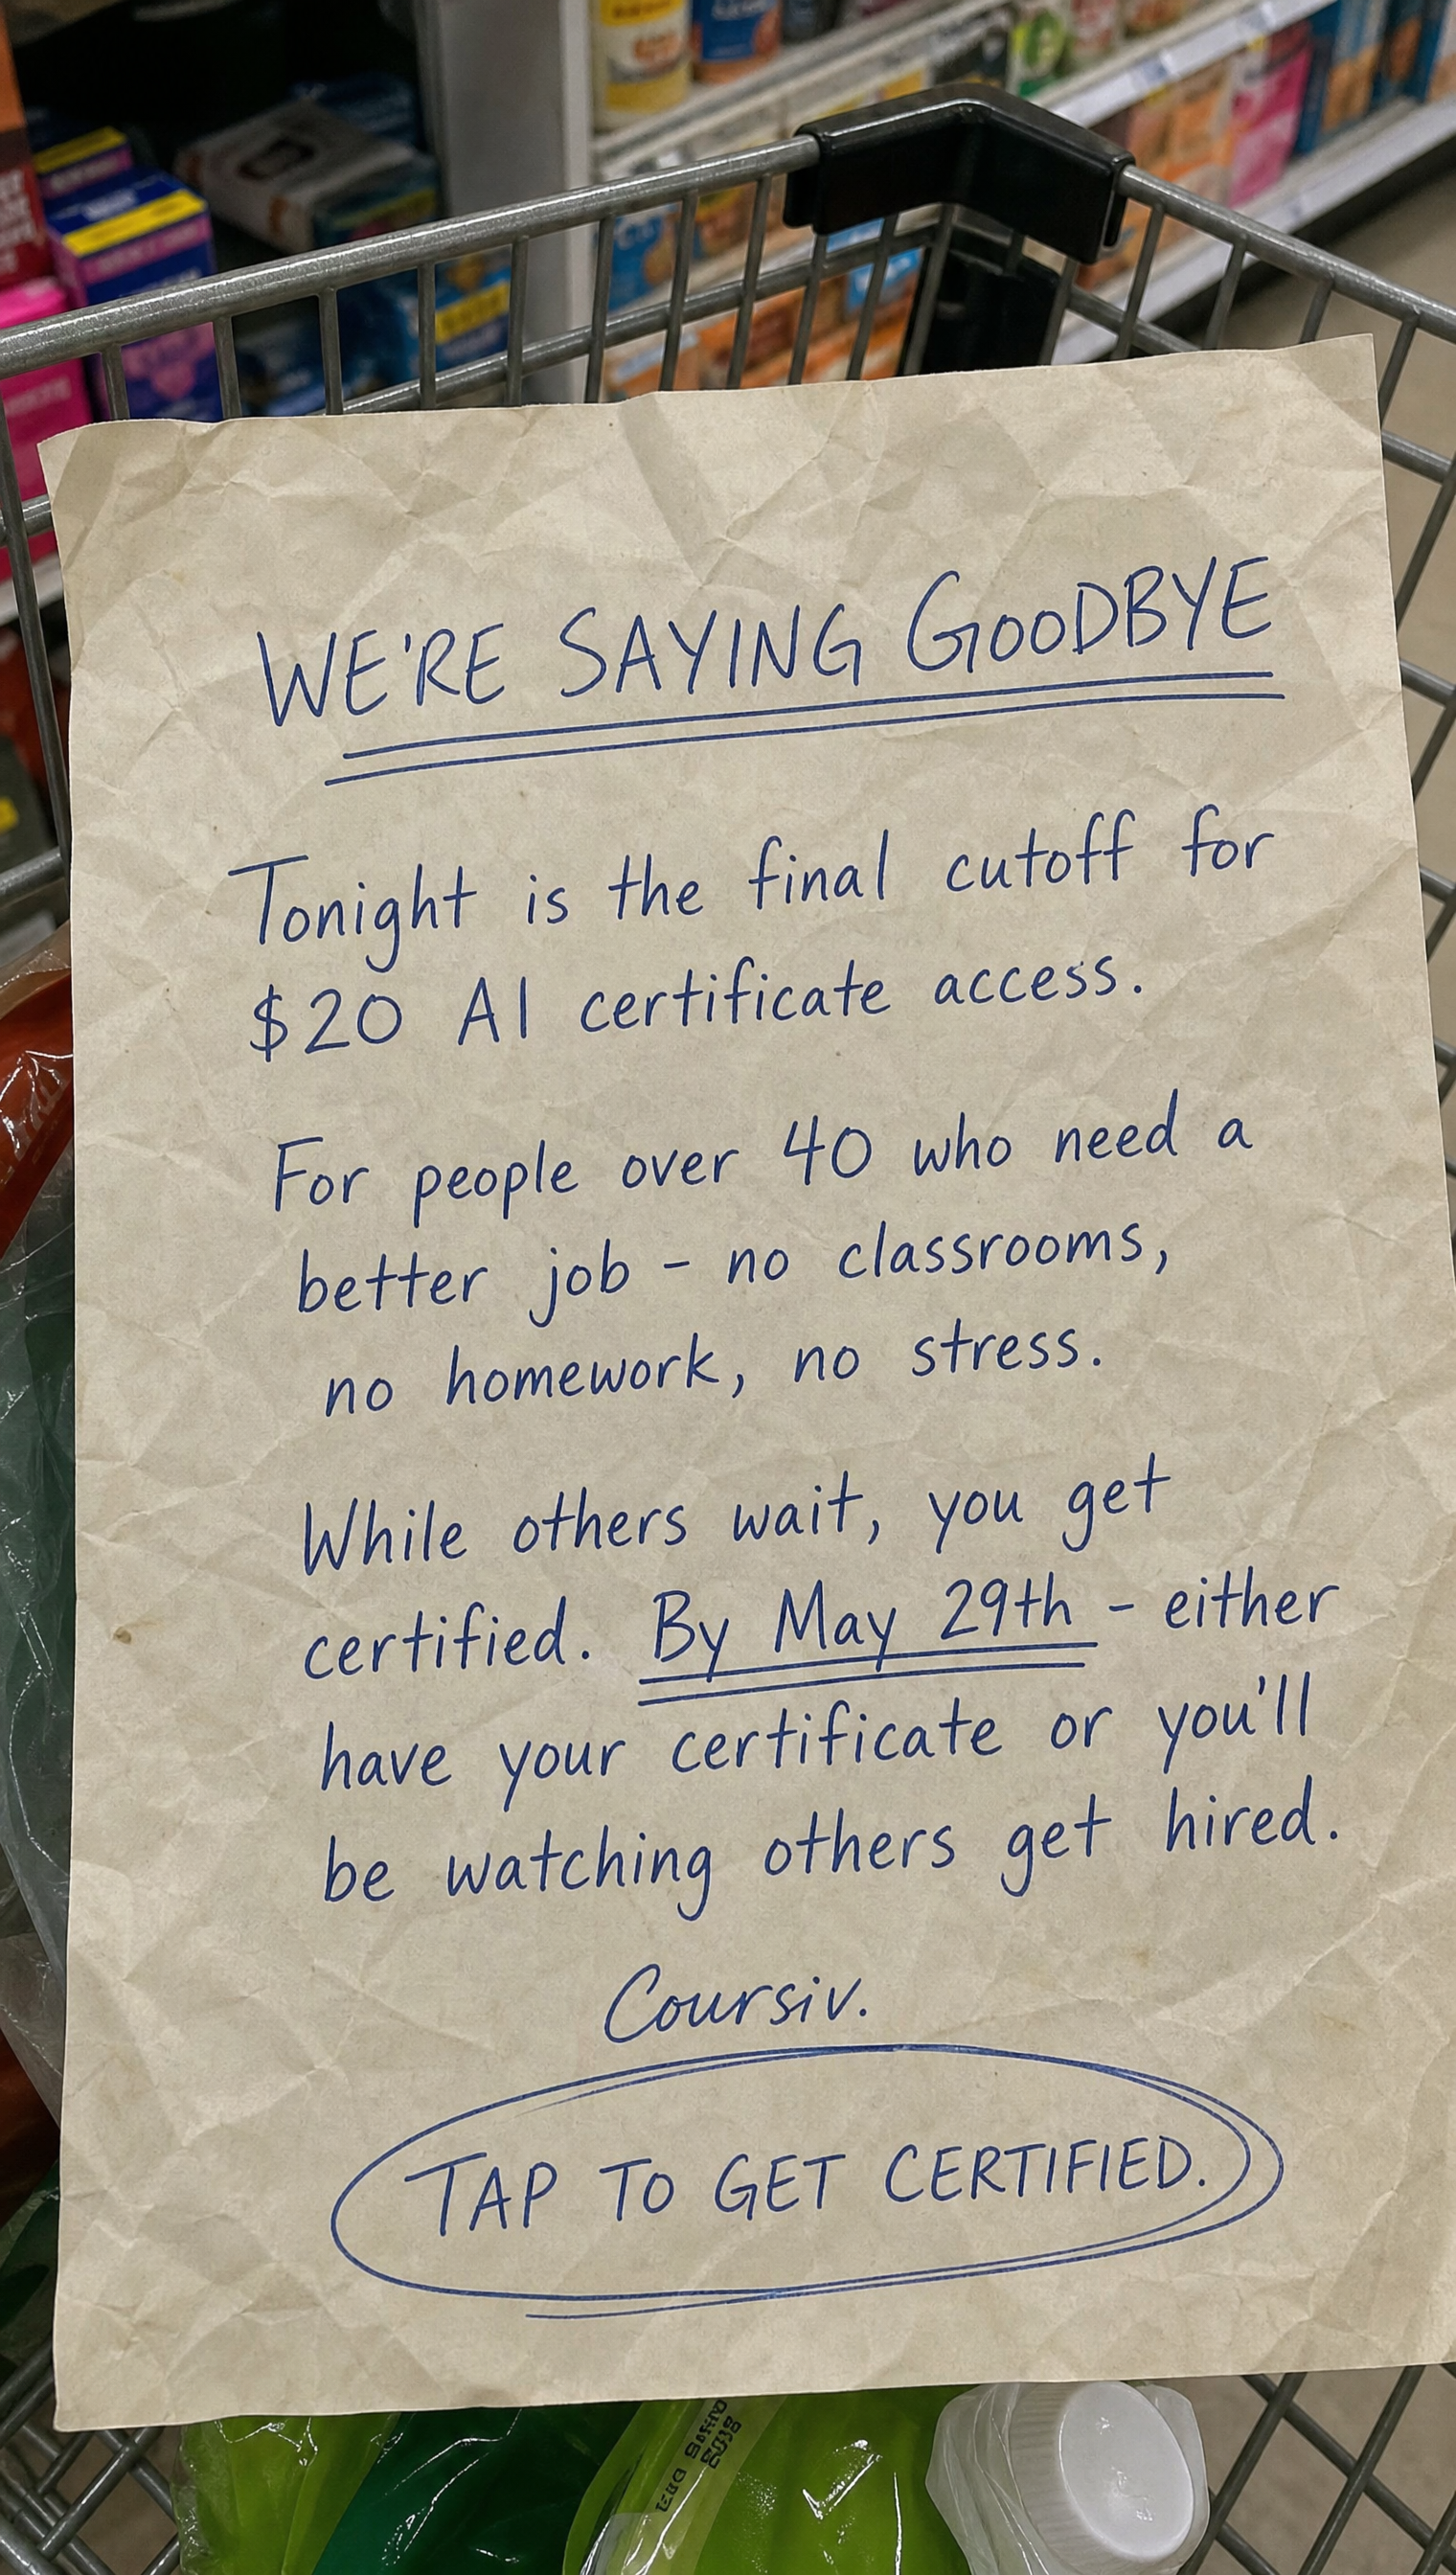 WE'RE SAYING GOODBYE
Tonight is the final cutoff for
$20 AI certificate access.
For people over 40 who need a
better job - no classrooms,
no homework, no stress.
While others wait, you get
certified. By May 29th - either
have your certificate or you'll
be watching others get hired.
Coursiv.
TAP TO GET CERTIFIED.